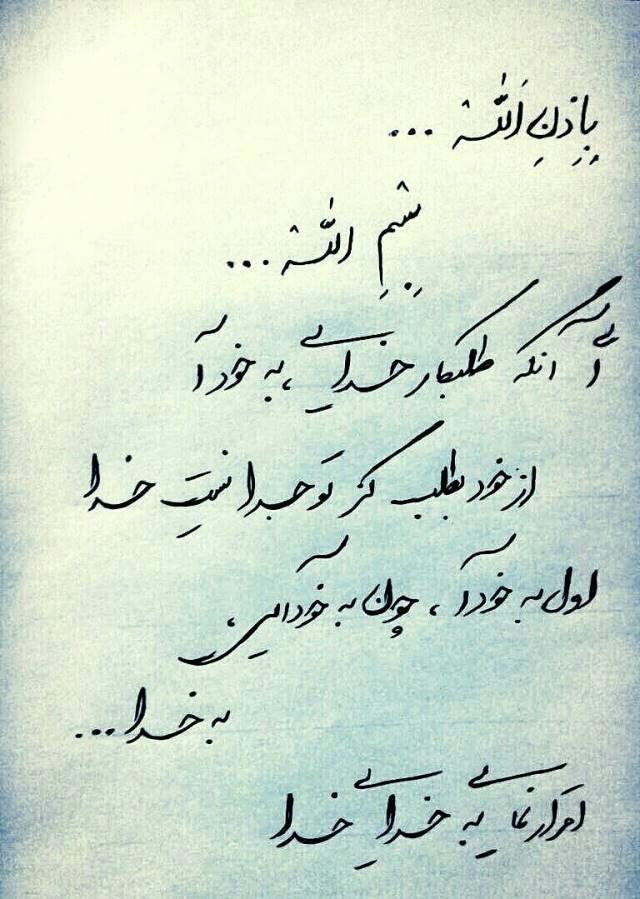 بِإِذنِ اَللّٰه ...
بِسْمِ اللّٰه ...
ای آنکه طلبکار خدایی، به خود آ
از خود بطلب کز تو جدا نیست خدا
اول به خود آ، چون به خود آیی،
به خدا...
اقرار نمایی به خدایی خدا